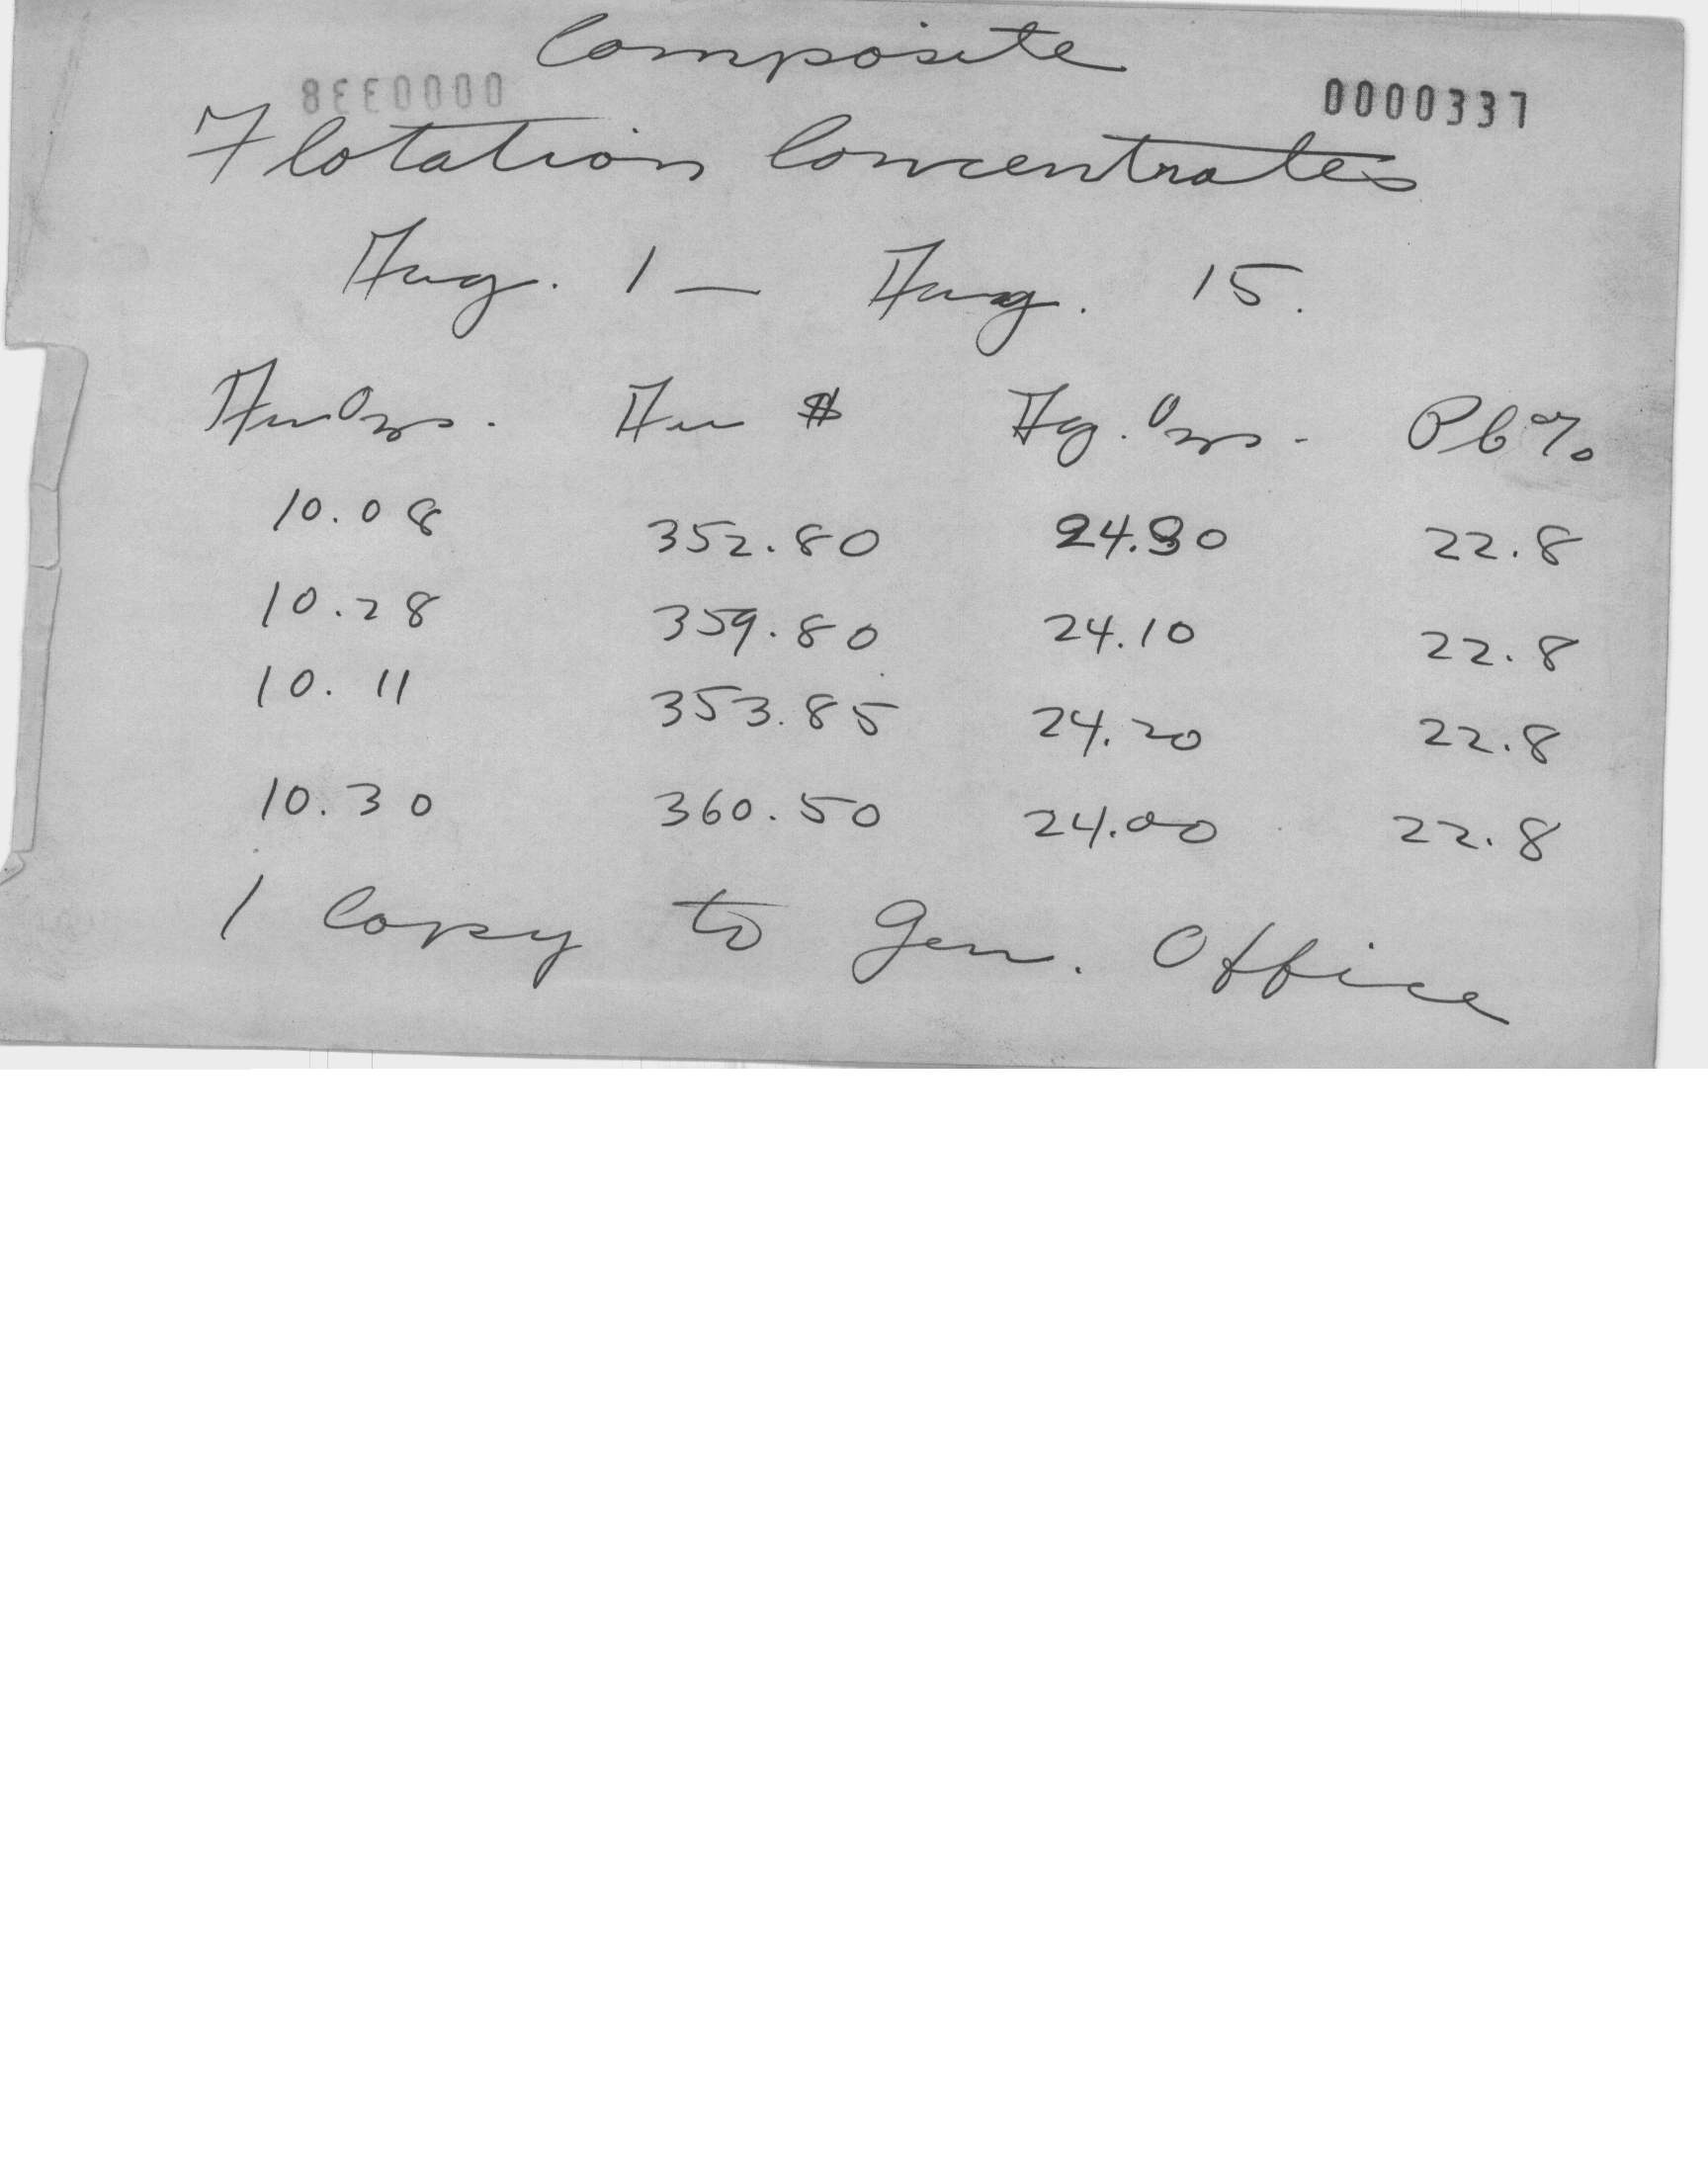 Composite
0000337
Flotation Concentrates
Aug. 1 — Aug. 15.
Au Ozs. Au $ Ag. Ozs. Pb %
10.08 352.80 24.30 22.8
10.28 359.80 24.10 22.8
10.11 353.85 24.20 22.8
10.30 360.50 24.00 22.8
1 Copy to Gen. Office